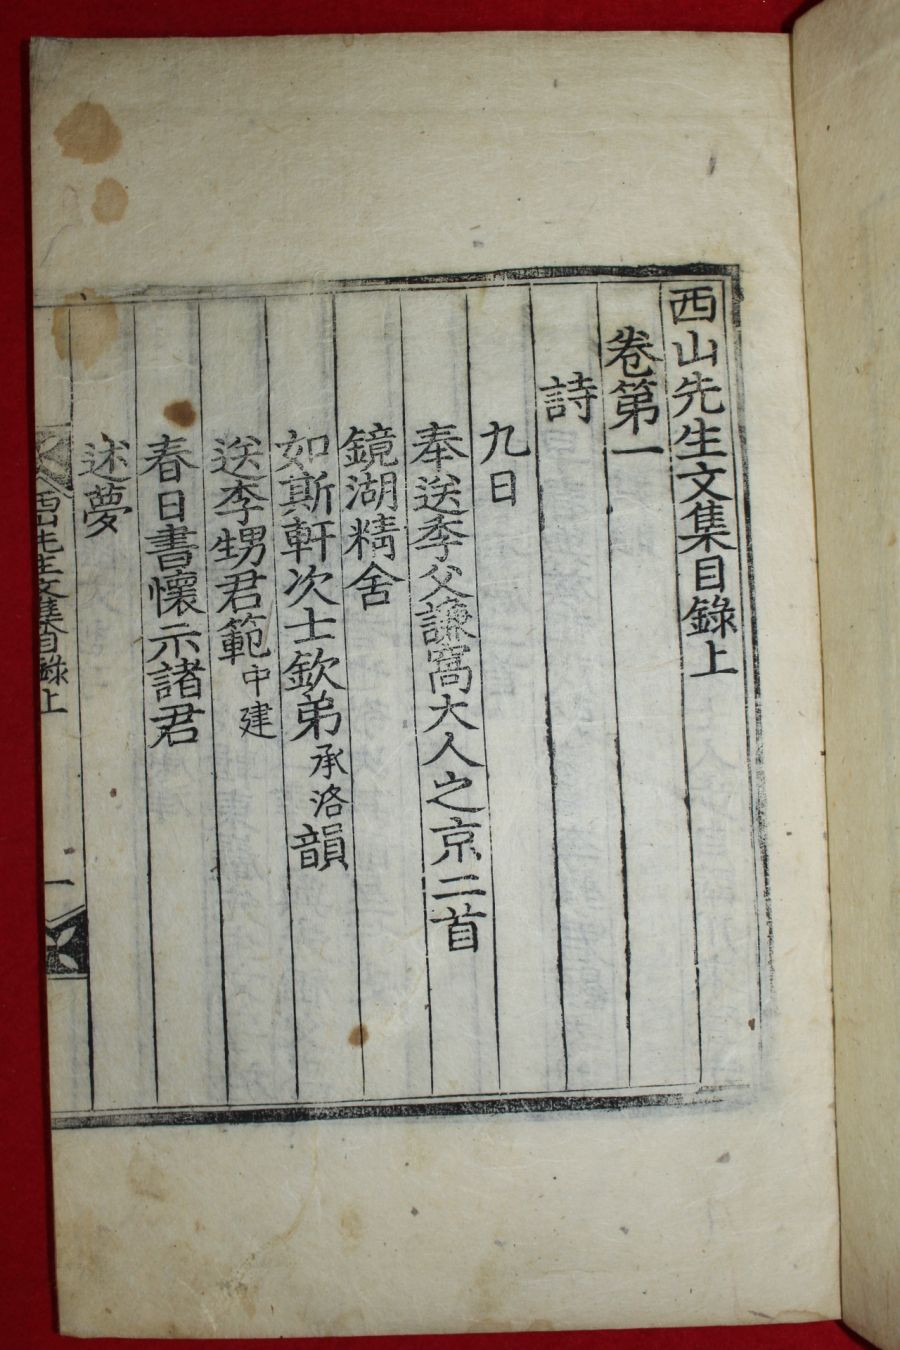 西山先生文集目錄上
卷第一
詩
九日
奉送季父謙窩大人之京二首
鏡湖精舍
如斯軒次士欽弟承洛韻
送李甥君範中建
春日書懷示諸君
述夢
西山先生文集目錄上
一